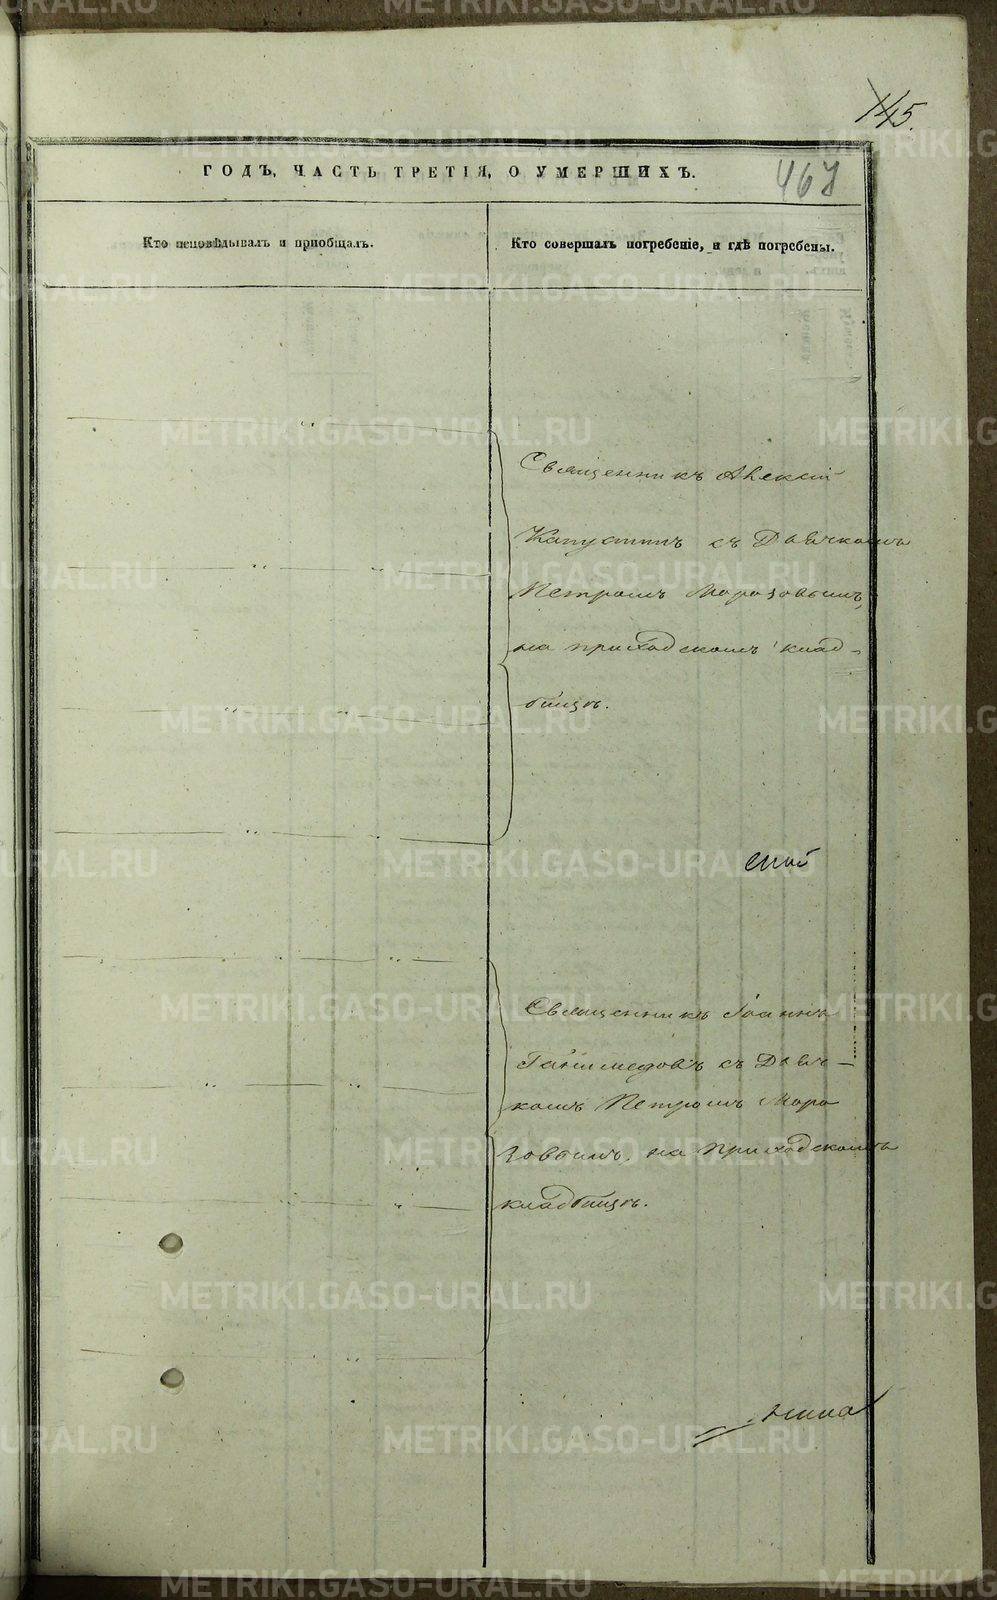 145.
467
ГОДЪ, ЧАСТЬ ТРЕТІЯ, О УМЕРШИХЪ.
Кто исповѣдывалъ и пріобщалъ.
Кто совершалъ погребеніе, и гдѣ погребены.
Священникъ Алексій
Капустинъ съ Дьячкомъ
Петромъ Морозовымъ,
на приходскомъ клад-
бищѣ.
Священникъ Іоаннъ
Ганимедовъ съ Дьяч-
комъ Петромъ Моро
зовымъ, на приходскомъ
кладбищѣ.
METRIKI.GASO-URAL.RU